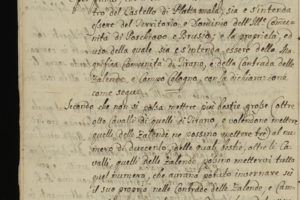 tro del Castello di Platta mala; sia e s'intenda
essere del Territorio, e Dominio dell'
nità di Poschiavo e Brusio; e la proprietà, ed
uso della quale sia e s'intenda essere della Ma-
gnifica Comunità di Tirano, e della Contrada delle
Zalende, e Campo Cologno, con la dichiarazione
come segue
Secondo che non si possa mettere più bestie grosse (oltre
otto Cavalli di quelli di Tirano, e volendone mettere
quelli delle Zalende ne possino mettere tre) al nu-
mero di duecento, delle quali bestie, oltre li Ca-
valli, quelli delle Zalende possino mettervi tutto
quel numero, che avranno potuto invernare nei
il suo proprio nelle Contrade delle Zalende, e Cam-